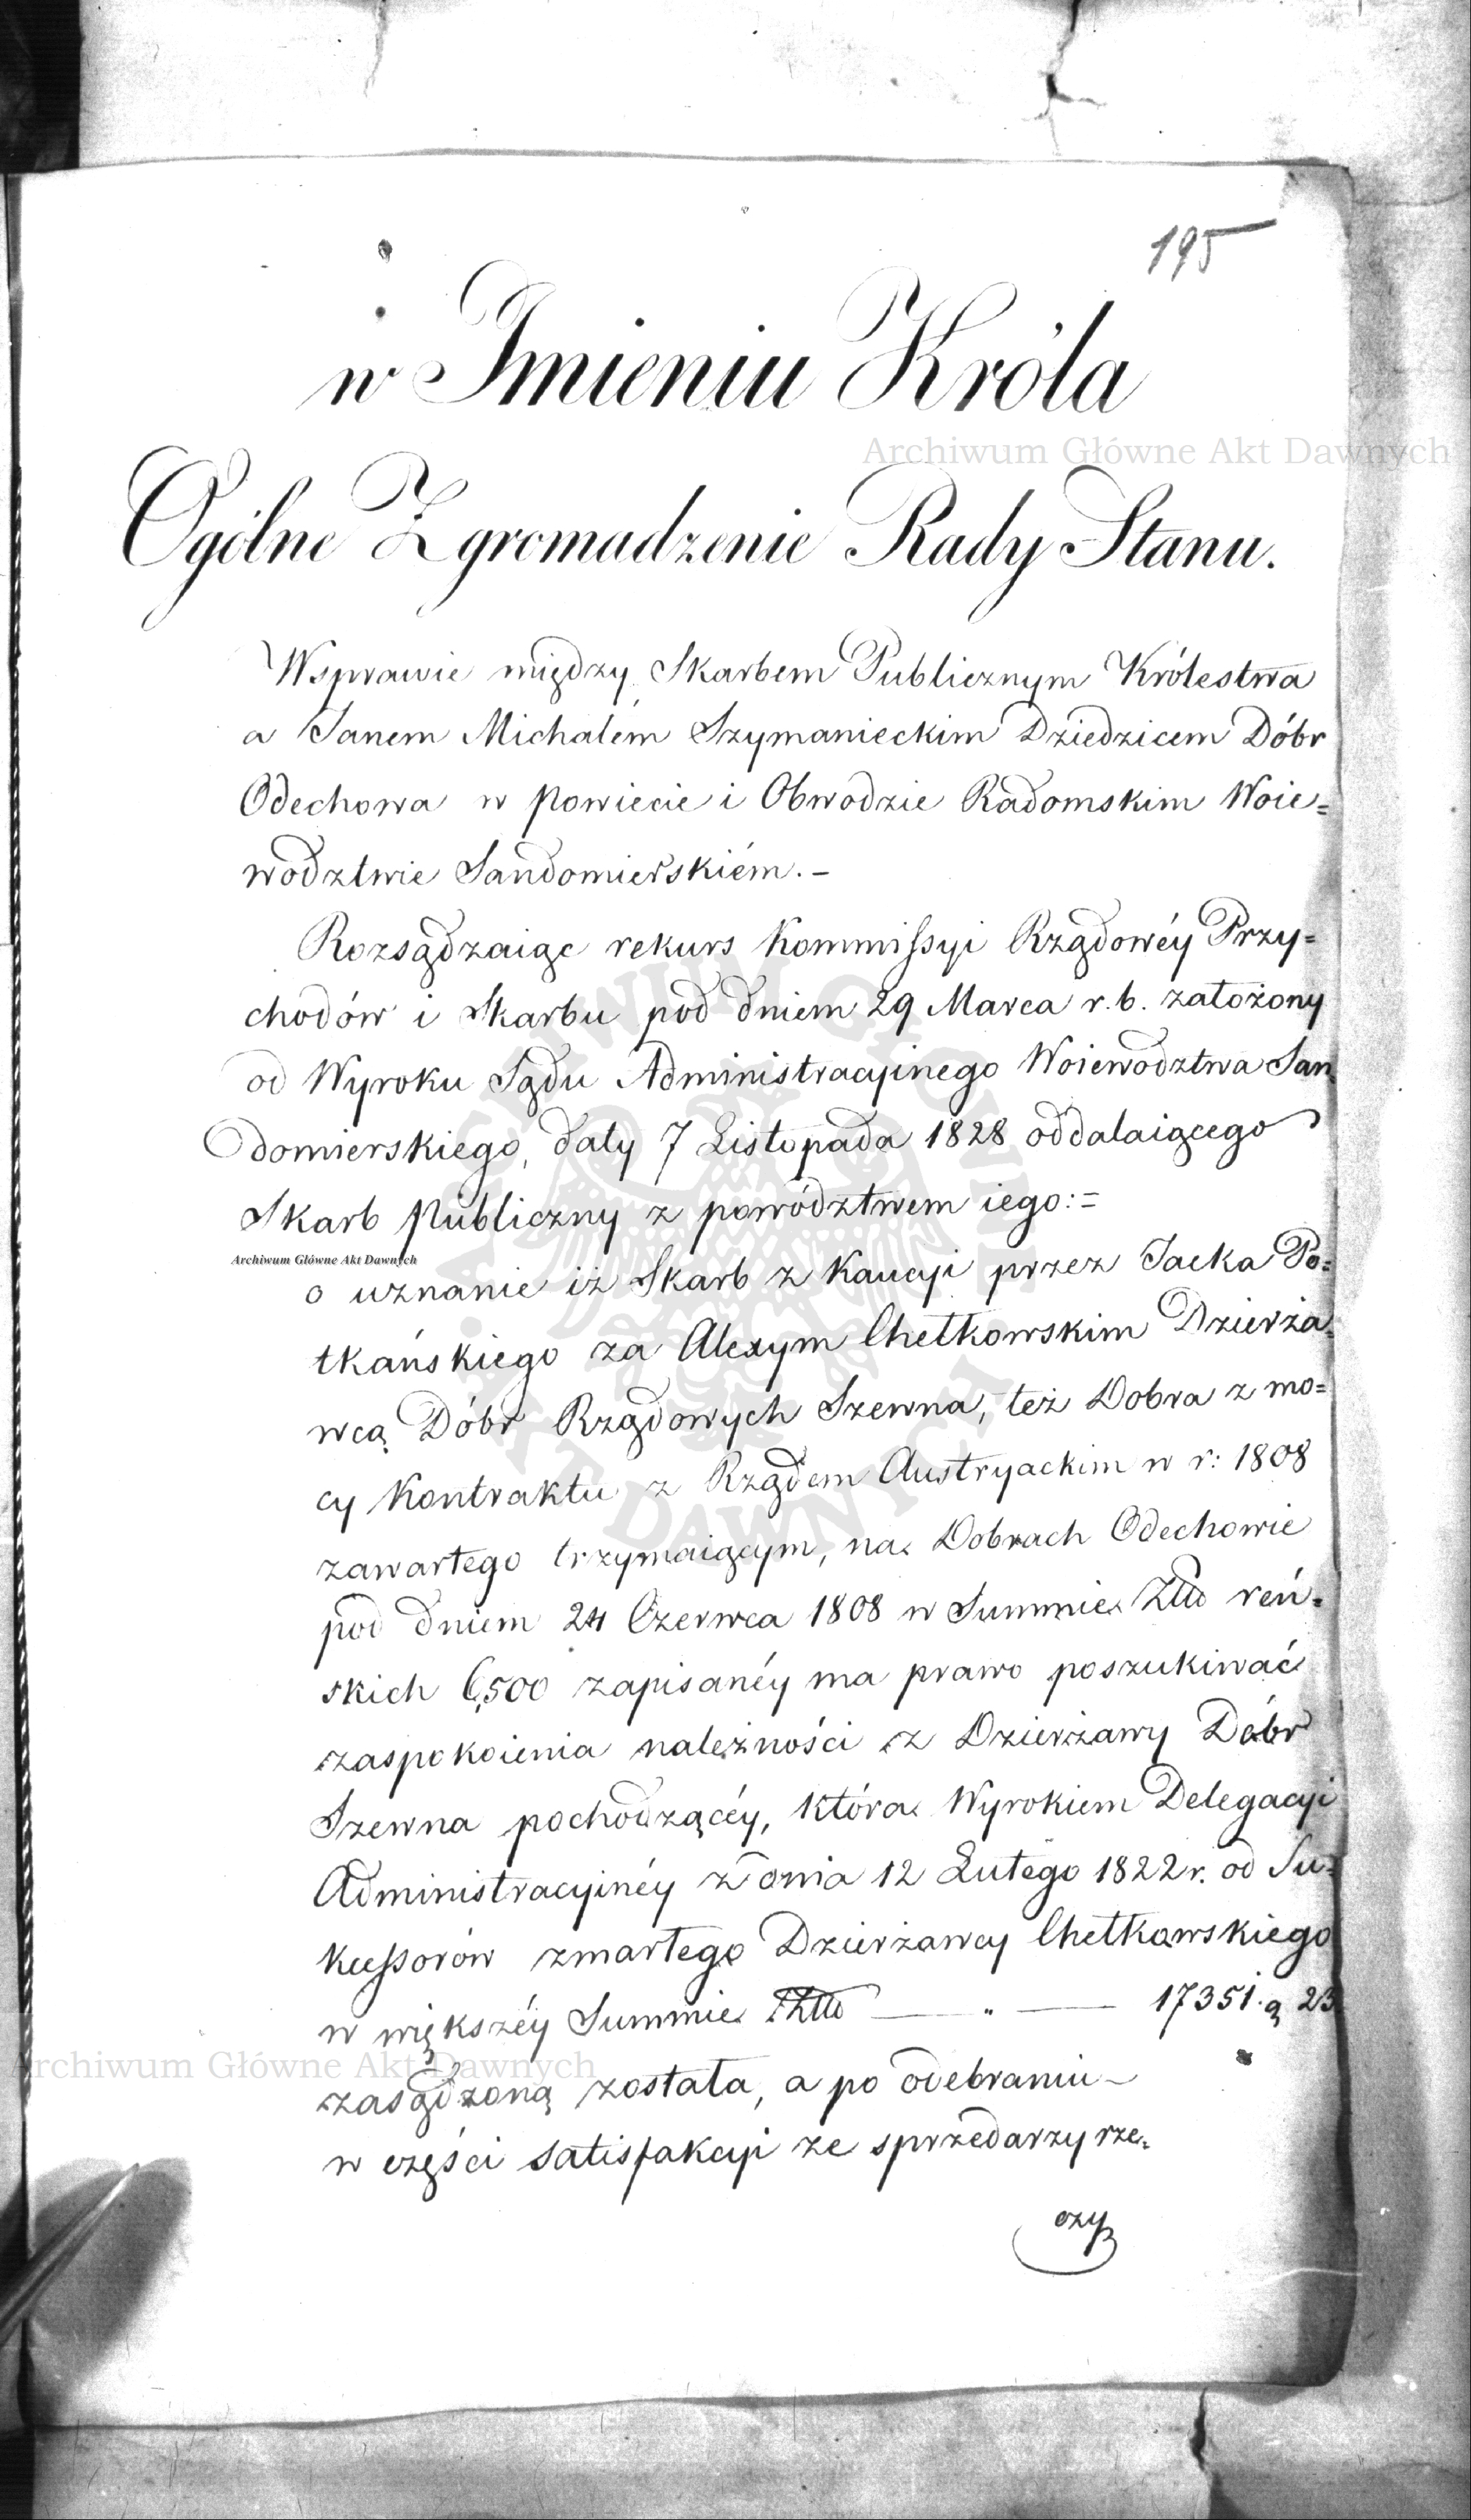 195
w Imieniu Króla
Archiwum Główne Akt Dawnych
Ogólne Zgromadzenie Rady Stanu.
Wsprawie między Skarbem Publicznym Królestwa
a Janem Michałém Szymanieckim Dziedzicem Dóbr
Odechowa w powiecie i Obwodzie Radomskim Woie=
wodztwie Sandomierskiém.-
Rozsądzaiąc rekurs Kommissyi Rządowéy Przy=
chodów i Skarbu pod dniem 29 Marca r.b. założony
od Wyroku Sądu Administracyinego Woiewodztwa San
domierskiego, daty 7 Listopada 1828 oddalaiącego
Skarb Publiczny z powództwem iego:=
Archiwum Główne Akt Dawnych
o uznanie iż Skarb z Kaucyi przez Jacka Po=
tkańskiego za Alexym Chełkowskim Dzierża=
wcą Dóbr Rządowych Szewna, też Dobra z mo=
cy Kontraktu z Rządem Austryackim w r: 1808
zawartego trzymaiącym, na Dobrach Odechowie
pod dniem 24 Czerwca 1808 w Summie Złło reń=
skich 6,500 zapisanéy ma prawo poszukiwać
zaspokoienia należności z Dzierżawy Dóbr
Szewna pochodzącéy, która Wyrokiem Delegacyi
Administracyinéy z dnia 12 Lutego 1822 r. od Su=
kcessorów zmarłego Dzierżawcy Chełkowskiego
w większéy Summie Złło — " — 17351. g 23
Archiwum Główne Akt Dawnych
zasądzoną została, a po odebraniu-
w części satisfakcyi ze sprzedarzy rze=
czy
ARCHIWUM GŁÓWNE AKT DAWNYCH